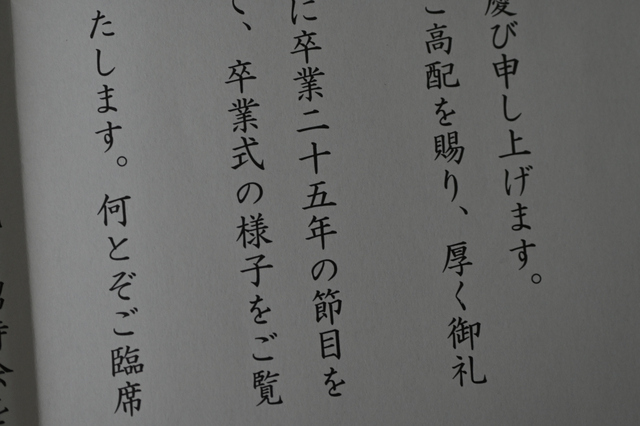 慶び申し上げます。
ご高配を賜り、厚く御礼
に卒業二十五年の節目を
て、卒業式の様子をご覧
たします。何とぞご臨席
招待会を